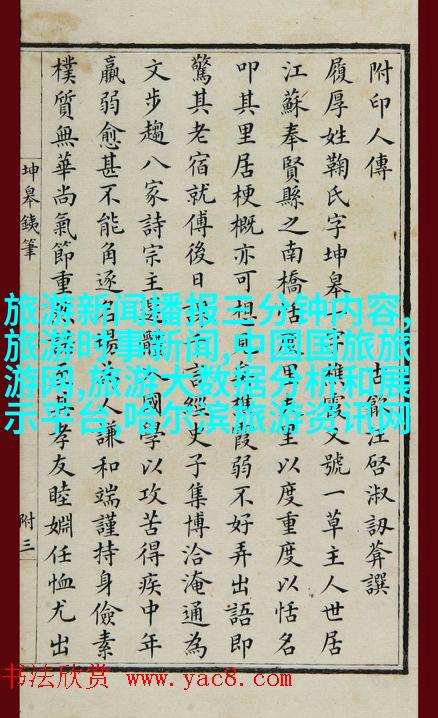 附印人傳 古歙汪啓淑訒葊譔
履厚姓鞠氏字坤皋一字樵霞又號一草主人世居
江蘇奉賢縣之南橋恬里夫里以度重度以恬名
叩其里居梗概亦可想見矣樵霞弱不好弄出語即
驚其老宿就傅後日言經史子集博洽淹通為
文步趨八家詩宗主國學以攻苦得疾中年
羸弱愈甚不能角逐名場為人謙和端謹持身儉素
樸質無華尚氣節重其孝友睦婣任恤尤出
坤皋銕筆
附三
旅游新闻播报三分钟内容,
旅游时事新闻,中国国旅旅
游网,旅游大数据分析和展
示平台,哈尔滨旅游资讯网
书法欣赏 www.yac8.com